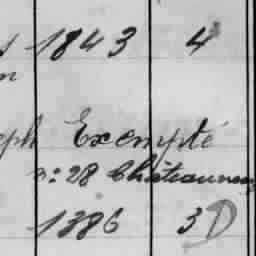 1843 4
n
eph Exempté
n: 28 Chateauneu
1386 3 D